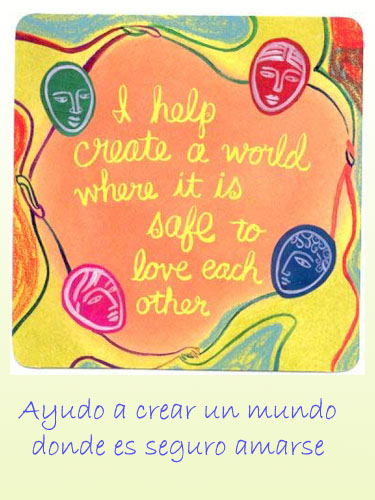 I help
create a world
where it is
safe to
love each
other
Ayudo a crear un mundo
donde es seguro amarse